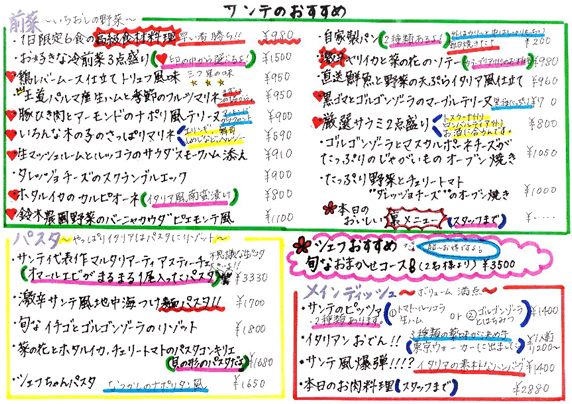 サンテのおすすめ
前菜 ~いちおしの野菜~
・1日限定6食の高級食材料理 早い者勝ち!! ¥980
・おすきな冷前菜3点盛り (♥印の中から選べるよ!) ¥1500
♥鶏レバームース仕立てトリュフ風味 三ツ星の味 ¥950
♥"王道"パルマ産生ハムと季節のフルーツマリネ ¥950
♥豚ひき肉とアーモンドのナポリ風テリーヌ ¥900
♥いろんな木の子のさっぱりマリネ ¥690
♥生マッシュルームとルッコラのサラダスモークハム添え ¥910
・タレッジョチーズのスクランブルエッグ ¥900
♥ホタルイカのカルピオーネ (イタリア風南蛮漬け) ¥800
♥鈴木農園野菜のバーニャカウダ ピエモンテ風 ¥1100
・自家製パン (2種類あるよ!) ¥200
・激辛ヤリイカと菜の花のソテー ¥980
・直送鮮魚と野菜の天ぷらイタリア風仕立て ¥960
・黒ゴマとゴルゴンゾーラのマーブルテリーヌ
♥厳選サラミ2点盛り ¥800
・ゴルゴンゾーラとマスカルポーネチーズが
たっぷりのじゃがいものオーブン焼き ¥1050
・たっぷり野菜とチェリートマト
"タレッジョチーズ"のオーブン焼き ¥1000
・本日の
おいしい 裏メニュー (スタッフまで) ¥-----
パスタ ~やっぱりイタリアはパスタにリゾット~
・サンテ代表作マルタリアーティアスティーチェ
(オマールエビがまるまる1尾入ったパスタ) ¥3330
・激辛サンテ風地中海つけ麺パスタ!! ¥1700
・旬なイチゴとゴルゴンゾーラのリゾット ¥1800
・菜の花とホタルイカ、チェリートマトのパスタコンキリエ
(貝の形のパスタだよ) ¥1680
・シェフちんパスタ なつかしのナポリタン風 ¥1650
シェフおすすめ
旬なおまかせコース (2名様より) ¥3500
メインディッシュ ~ボリューム満点~
・サンテのピッツァ (①トマト・バッコラ 生ハム or ②ゴルゴンゾーラとはちみつ) ¥1400
2種類あります
・イタリアンおでん!! 3種類の薬味が決め手 ¥1人前
東京ウォーカーに出ました 1200~
・サンテ風爆弾!!!? イタリアの素朴なハンバーグ ¥1400
・本日のお肉料理 (スタッフまで) ¥2880